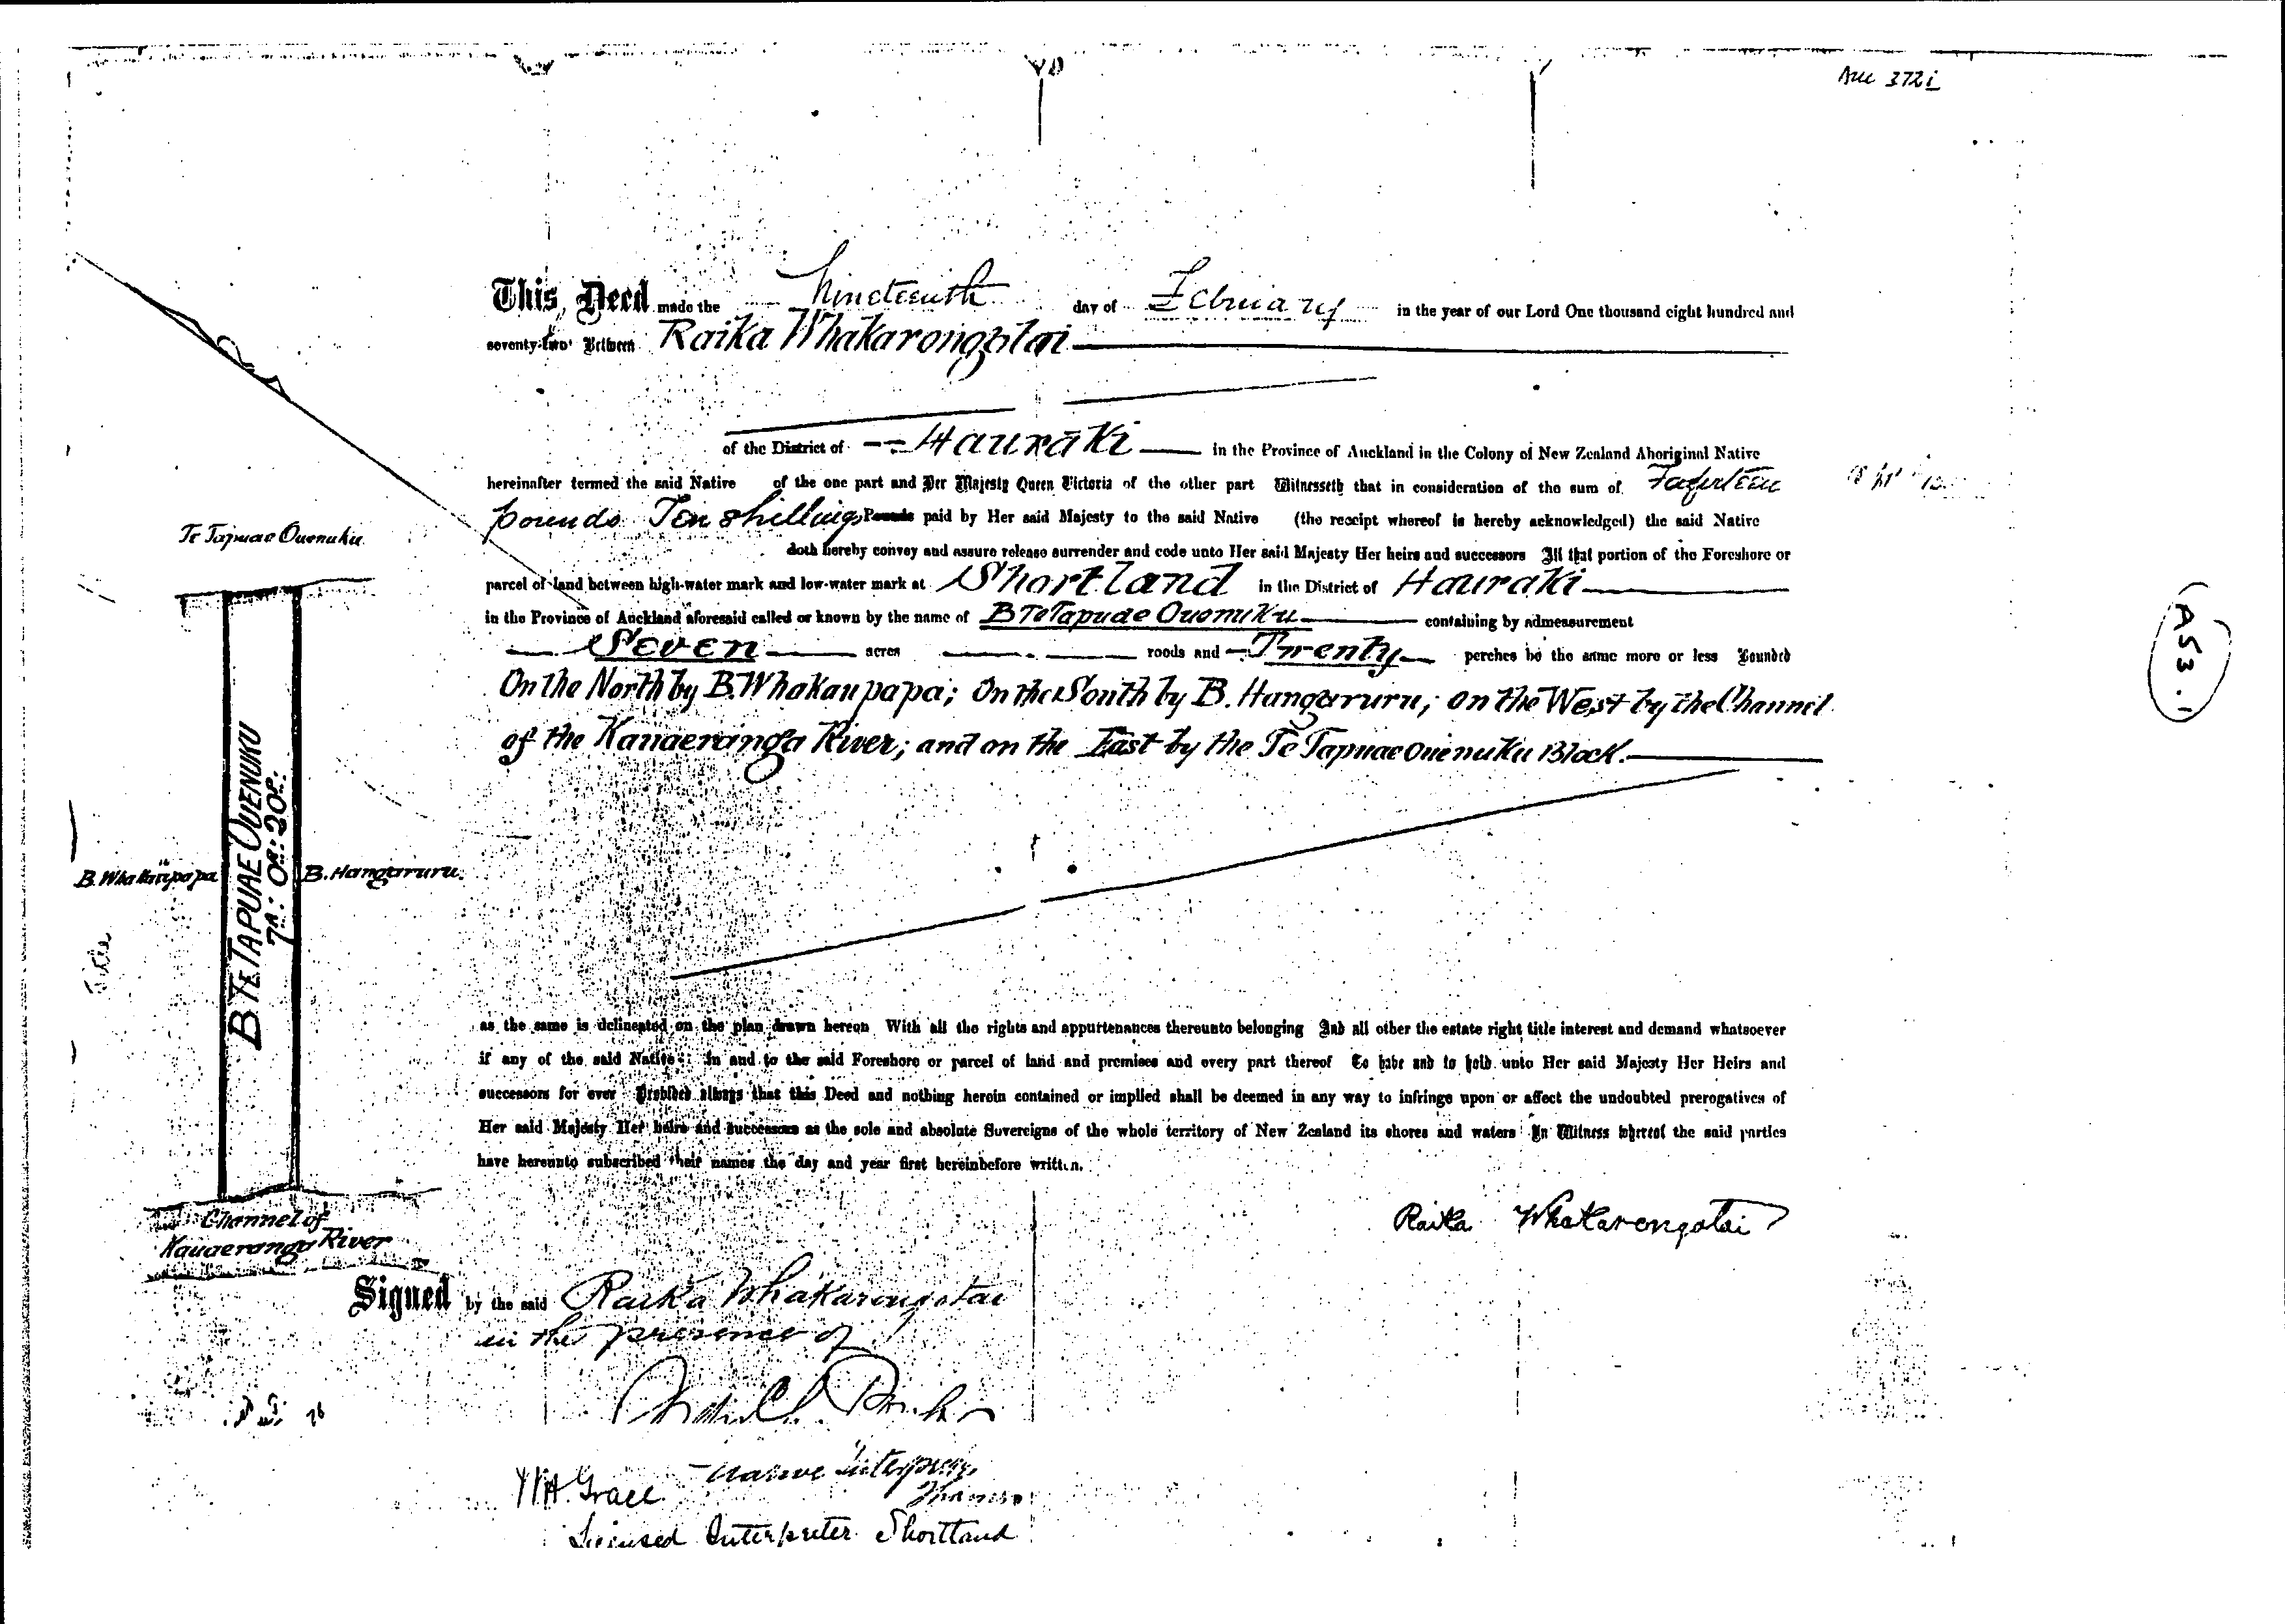 Auc 372i
This Deed made the Nineteenth day of February in the year of our Lord One thousand eight hundred and
seventy-two Between Raika Whakarongotai
of the District of Hauraki in the Province of Auckland in the Colony of New Zealand Aboriginal Native
hereinafter termed the said Native of the one part and Her Majesty Queen Victoria of the other part Witnesseth that in consideration of the sum of
pounds Ten shillings Pounds paid by Her said Majesty to the said Native (the receipt whereof is hereby acknowledged) the said Native
doth hereby convey and assure release surrender and cede unto Her said Majesty Her heirs and successors All that portion of the Foreshore or
parcel of land between high-water mark and low-water mark at Shortland in the District of Hauraki
in the Province of Auckland aforesaid called or known by the name of B Te Tapuae Ouenuku containing by admeasurement
Seven acres roods and Twenty perches be the same more or less Bounded
On the North by B. Whakaupapa; On the South by B. Hangaruru; on the West by the Channel
of the Kauaeranga River; and on the East by the Te Tapuae Ouenuku Block.
Te Tapuae Ouenuku
B. Whakaupapa
B TE TAPUAE OUENUKU
7A: 0R: 20P.
B. Hangaruru.
Channel of
Kauaeranga River
A53.1
as the same is delineated on the plan drawn hereon With all the rights and appurtenances thereunto belonging And all other the estate right title interest and demand whatsoever
if any of the said Native in and to the said Foreshore or parcel of land and premises and every part thereof To have and to hold unto Her said Majesty Her Heirs and
successors for ever Provided always that this Deed and nothing herein contained or implied shall be deemed in any way to infringe upon or affect the undoubted prerogatives of
Her said Majesty Her heirs and successors as the sole and absolute Sovereigns of the whole territory of New Zealand its shores and waters In Witness whereof the said parties
have hereunto subscribed their names the day and year first hereinbefore written.
Raika Whakarongotai
Signed by the said Raika Whakarongotai
in the presence of
Native Interpreter
Thames
Grace
Licensed Interpreter Shortland